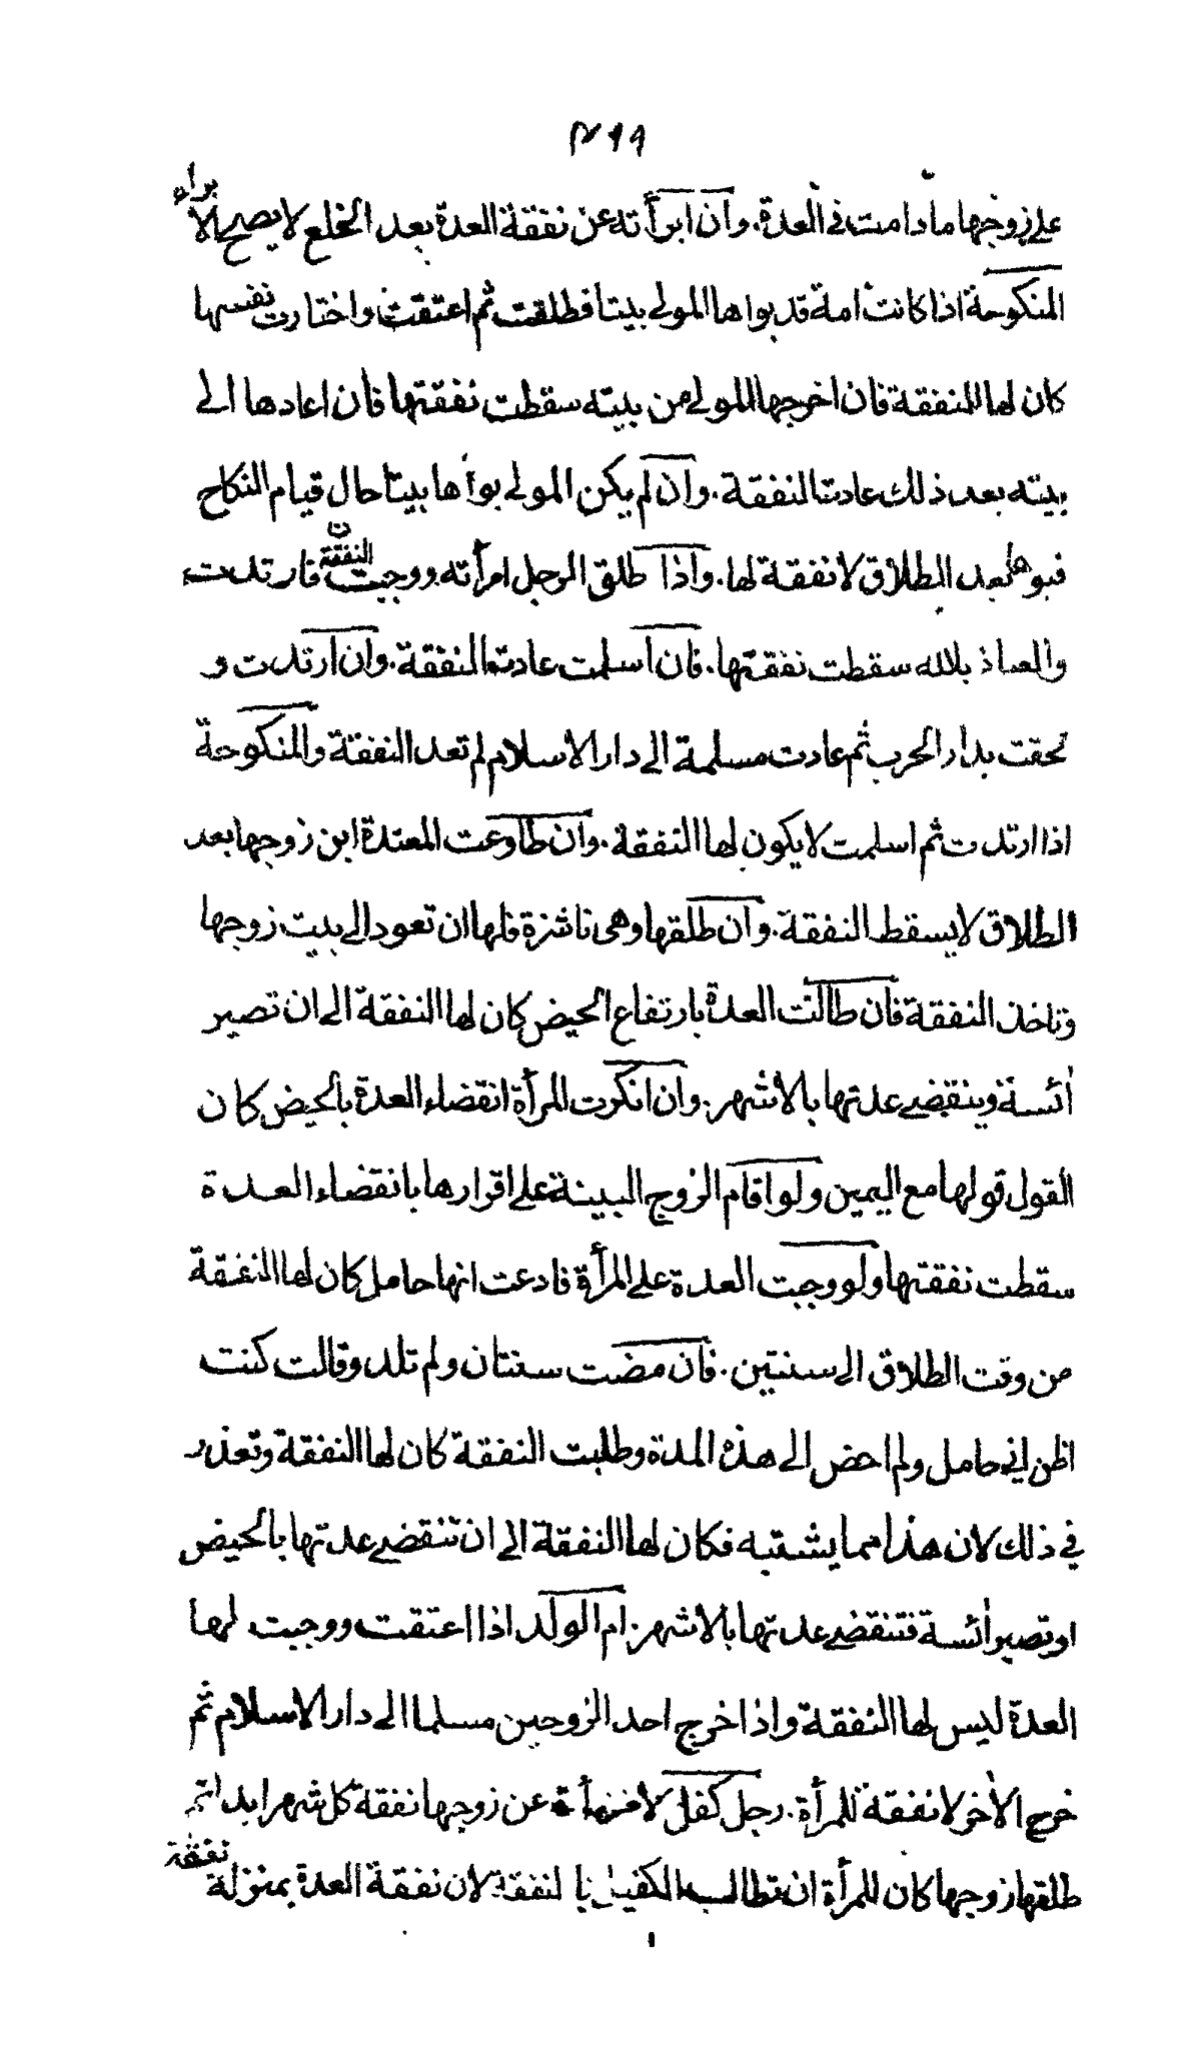 ٢٩٩
على زوجها ما دامت فى العدة. وان ابرأته عن نفقة العدة بعد الخلع لا يصح الابراء
المنكوحة اذا كانت امة قد بواها المولى بيتا فطلقت ثم اعتقت واختارت نفسها
كان لها النفقة فان اخرجها المولى من بيته سقطت نفقتها فان اعادها الى
بيته بعد ذلك عادت النفقة. وان لم يكن المولى بوأها بيتا حال قيام النكاح
فبوها بعد الطلاق لا نفقة لها. واذا طلق الرجل امرأته ووجبت النفقة فارتدت
والعياذ بالله سقطت نفقتها. فان اسلمت عادت النفقة. وان ارتدت و
لحقت بدار الحرب ثم عادت مسلمة الى دار الاسلام لم تعد النفقة والمنكوحة
اذا ارتدت ثم اسلمت لا يكون لها النفقة. وان طاوعت المعتدة ابن زوجها بعد
الطلاق لا يسقط النفقة. وان طلقها وهى ناشزة فلها ان تعود الى بيت زوجها
وتاخذ النفقة فان طالت العدة بارتفاع الحيض كان لها النفقة الى ان تصير
أئسة وينقضى عدتها بالاشهر. وان انكرت المرأة انقضاء العدة بالحيض كان
القول قولها مع اليمين ولو اقام الزوج البينة على اقرارها بانقضاء العدة
سقطت نفقتها ولو وجبت العدة على المرأة فادعت انها حامل كان لها النفقة
من وقت الطلاق الى سنتين. فان مضت سنتان ولم تلد وقالت كنت
اظن انى حامل ولم احض الى هذه المدة وطلبت النفقة كان لها النفقة وتعذر
فى ذلك لان هذا مما يشتبه فكان لها النفقة الى ان تنقضى عدتها بالحيض
او تصير أئسة فتنقضى عدتها بالاشهر. ام الولد اذا اعتقت ووجبت لها
العدة ليس لها النفقة واذا خرج احد الزوجين مسلما الى دار الاسلام ثم
خرج الأخر لا نفقة للمرأة. رجل كفل لامرأة عن زوجها نفقة كل شهر ابدا ثم
طلقها زوجها كان للمرأة ان تطالب الكفيل بالنفقة لان نفقة العدة بمنزلة نفقة